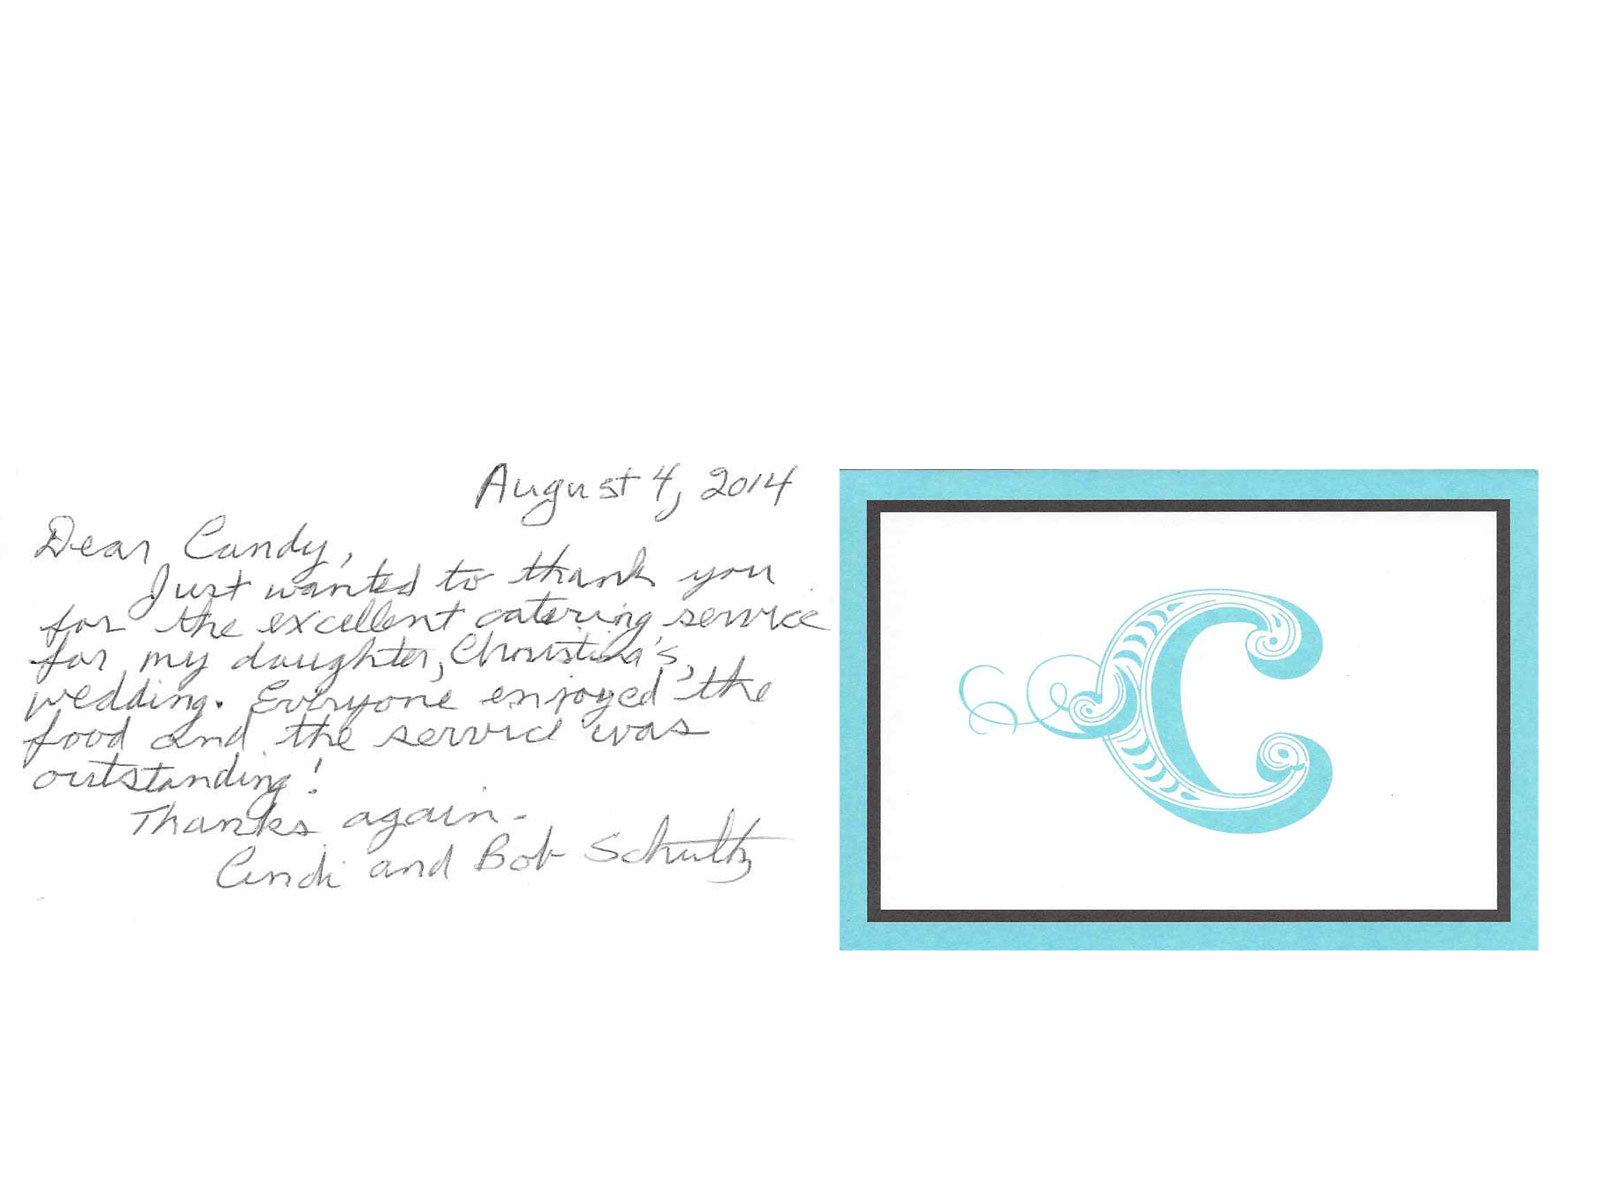 August 4, 2014
Dear Candy,
Just wanted to thank you
for the excellent catering service
for my daughter, Christina's,
wedding. Everyone enjoyed the
food and the service was
outstanding!
Thanks again-
Cindi and Bob Schultz
C